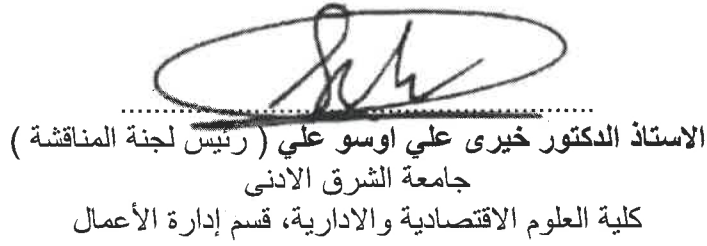 الاستاذ الدكتور خيرى علي اوسو علي ( رئيس لجنة المناقشة )
جامعة الشرق الادنى
كلية العلوم الاقتصادية والادارية، قسم إدارة الأعمال